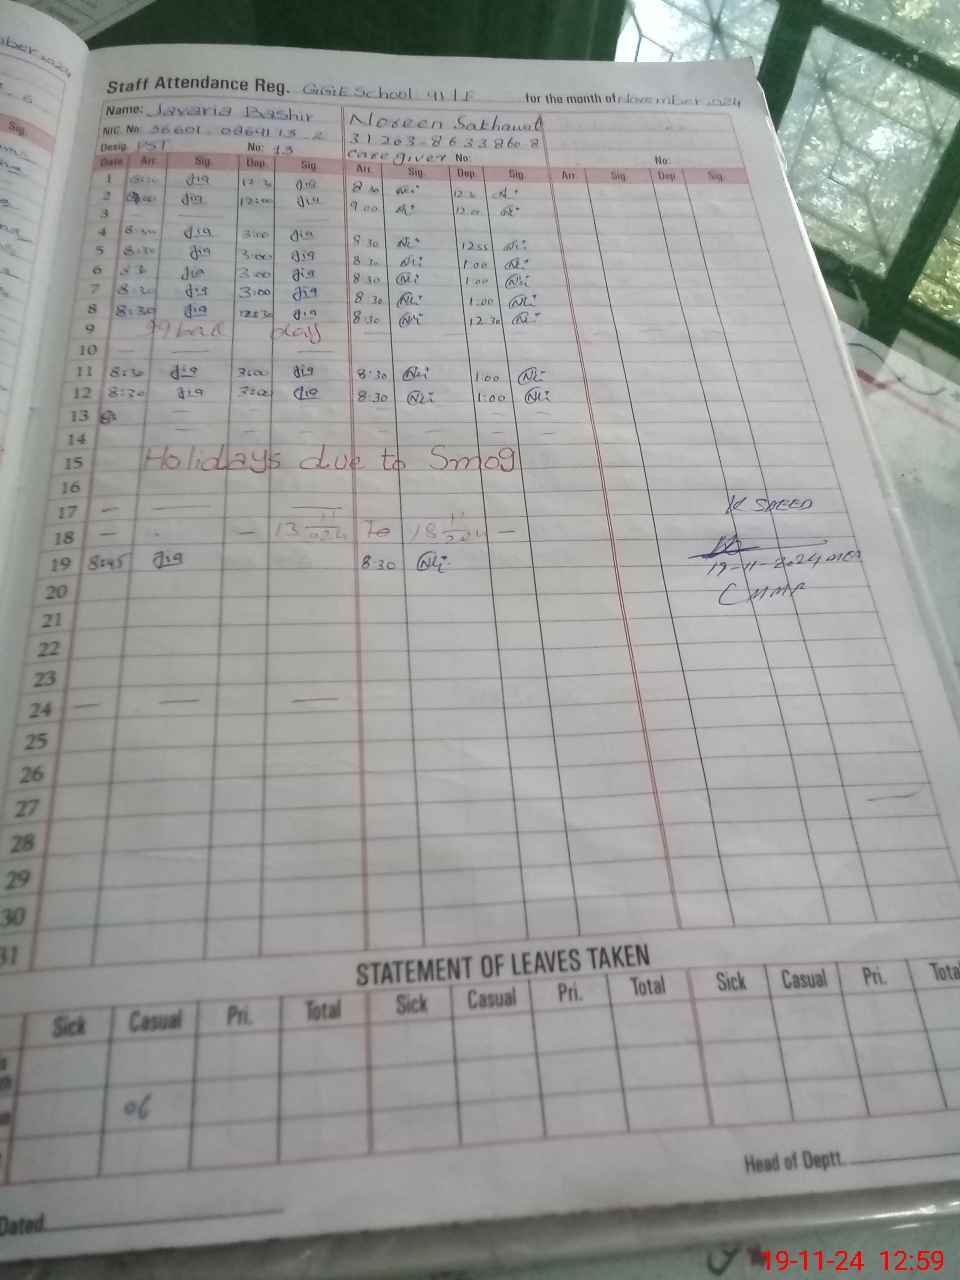 Staff Attendance Reg. GGE School 41/F for the month of November 2024
Name: Javaria Bashir Noreen Sakhawat
NIC. No: 36601-0864113-2 31203-8633860-8
Desig. PST No: 13 Care giver No: No:
Date Arr. Sig. Dep. Sig. Arr. Sig. Dep. Sig. Arr. Sig. Dep. Sig.
1 8:30 12:30 8 30 12:30
2 12:00 9.00 12:00
3
4 8:30 3:00 8 30 1255
5 8:30 3:00 8 30 1:00
6 3:00 8:30 1:00
7 8:30 3:00 8:30 1:00
8 8:30 12:30 8:30 12.30
9 days
10
11 8:30 3:00 8:30 1:00
12 8:30 3:00 8:30 1:00
13
14
15 Holidays due to Smog
16
17
18 13 11/024 To 18 11/2024
19 8:45 8:30
19-11-2024
20
21
22
23
24
25
26
27
28
29
30
31
STATEMENT OF LEAVES TAKEN
Sick Casual Pri. Total Sick Casual Pri. Total Sick Casual Pri. Total
06
Head of Deptt.
Dated
19-11-24 12:59